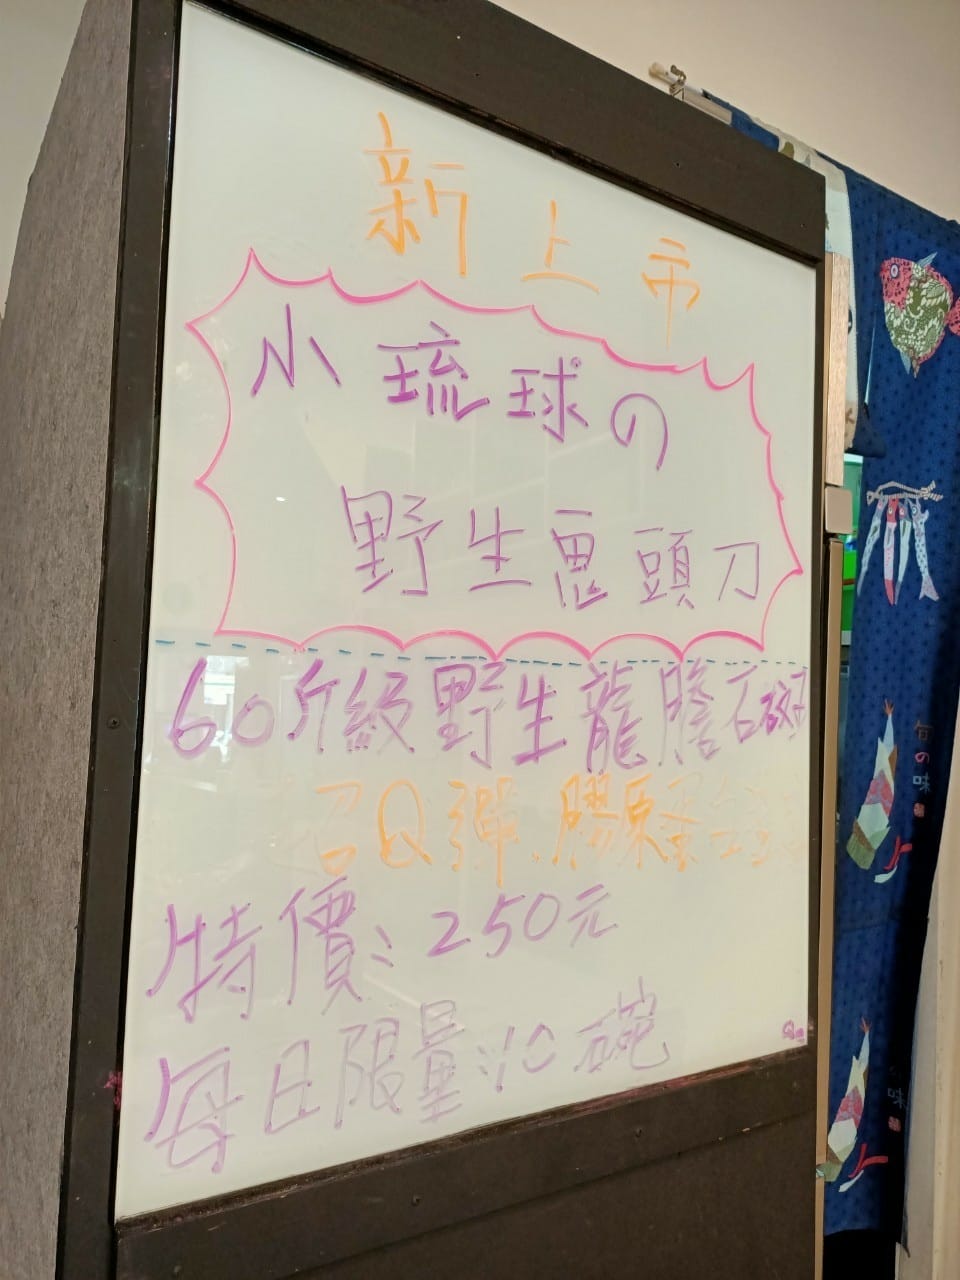 新上市
小琉球の
野生鬼頭刀
60斤級野生龍膽石斑
超Q彈、膠原蛋白
特價：250元
每日限量：10碗
旬の味
味